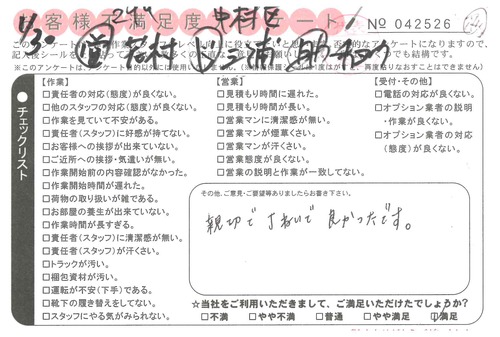 お客様不満足度アンケート!
№ 042526
1/30
24年
中村区
※このアンケートは、アンケート目的以外には使用いたしません。
チェックリスト
【作業】
□責任者の対応(態度)が良くない。
□他のスタッフの対応(態度)が良くない。
□作業を見ていて不安がある。
□責任者(スタッフ)に好感が持てない。
□お客様への挨拶が出来ていない。
□ご近所への挨拶・気遣いが無い。
□作業開始前の内容確認がなかった。
□作業開始時間が遅れた。
□荷物の取り扱いが雑である。
□お部屋の養生が出来ていない。
□作業時間が長すぎる。
□責任者(スタッフ)に清潔感が無い。
□責任者(スタッフ)が汗くさい。
□トラックが汚い。
□梱包資材が汚い。
□運転が不安(下手)である。
□靴下の履き替えをしてない。
□スタッフにやる気がみられない。
【営業】
□見積もり時間に遅れた。
□見積もり時間が長い。
□営業マンに清潔感が無い。
□営業マンが煙草くさい。
□営業マンが汗くさい。
□営業態度が良くない。
□営業の説明と作業が一致してない。
【受付・その他】
□電話の対応が良くない。
□オプション業者の説明
・作業が良くない。
□オプション業者の対応
(態度)が良くない。
その他、ご意見・ご要望等ありましたらお書き下さい。
親切で丁ねいで良かったです。
☆当社をご利用いただきまして、ご満足いただけたでしょうか?
□不満 □やや不満 □普通 □やや満足 □満足